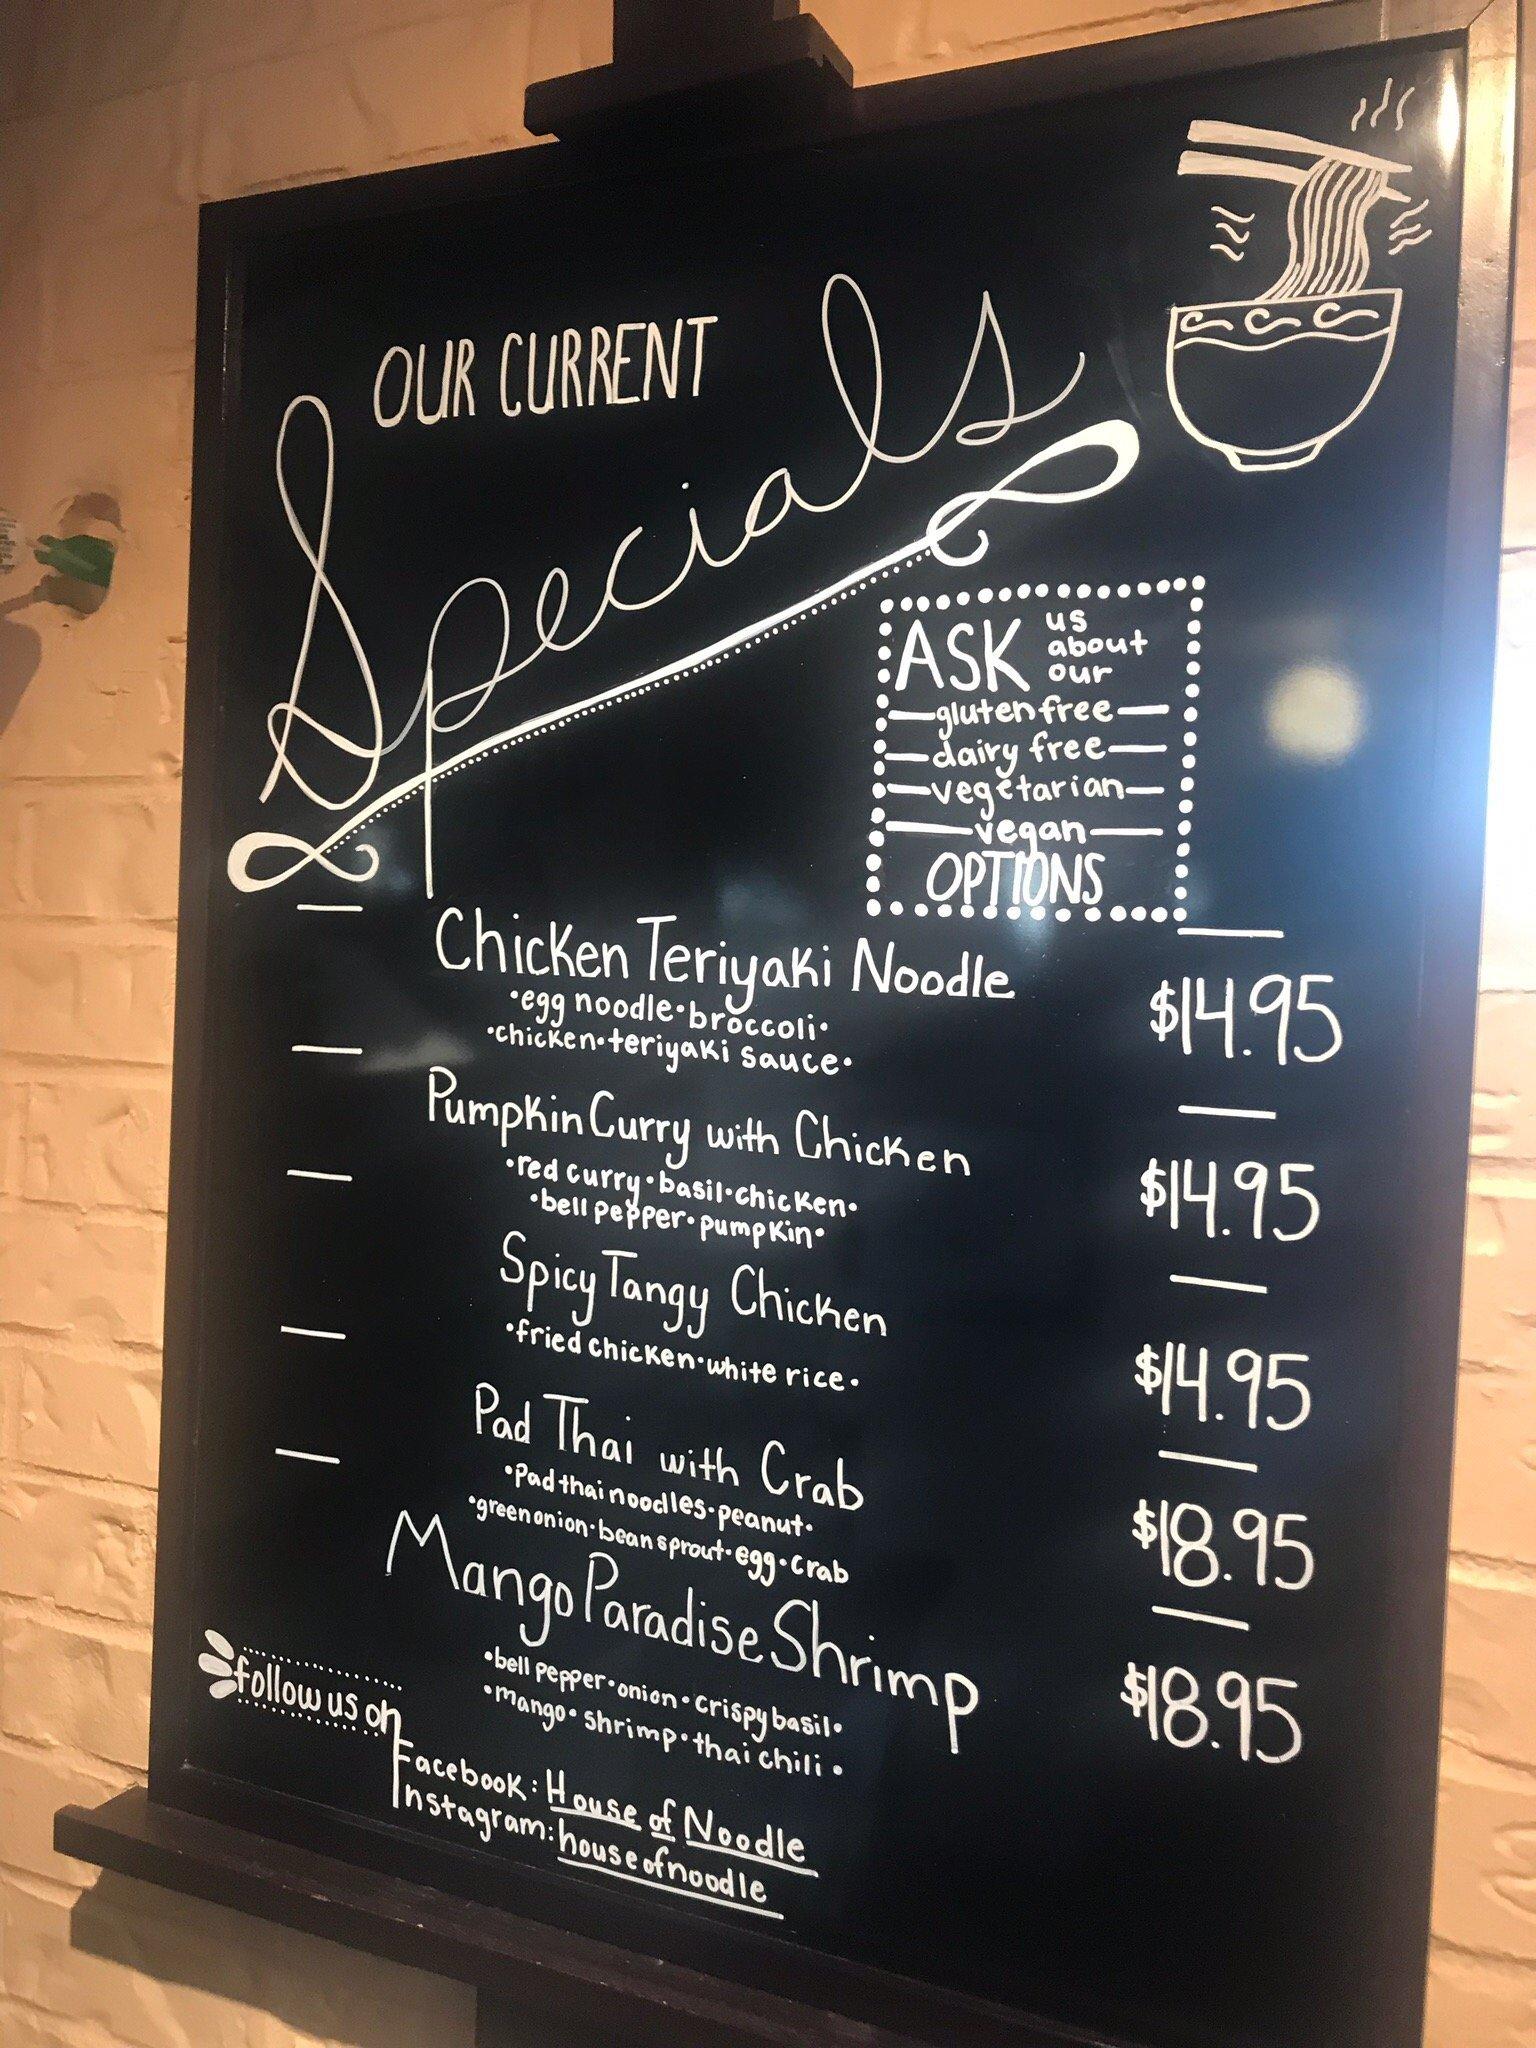 OUR CURRENT
Specials
ASK us about our
gluten free
dairy free
vegetarian
vegan
OPTIONS
Chicken Teriyaki Noodle $14.95
•egg noodle•broccoli•
•chicken•teriyaki sauce•
Pumpkin Curry with Chicken $14.95
•red curry•basil•chicken•
•bell pepper•pumpkin•
Spicy Tangy Chicken $14.95
•fried chicken•white rice•
Pad Thai with Crab $18.95
•Pad thai noodles•peanut•
•green onion•bean sprout•egg•crab
Mango Paradise Shrimp $18.95
•bell pepper•onion•crispy basil•
•mango•shrimp•thai chili•
follow us on
Facebook: House of Noodle
Instagram: houseofnoodle